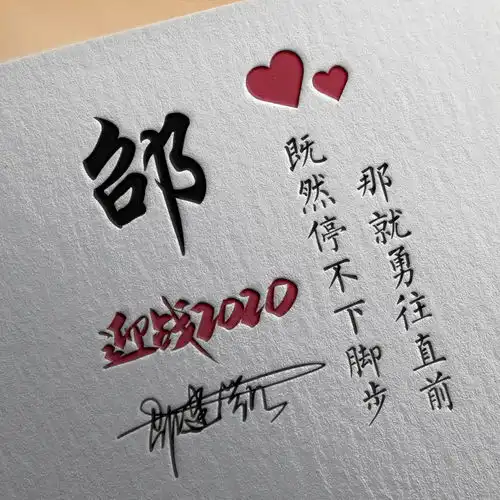 邵
迎战2020
既然停不下脚步
那就勇往直前